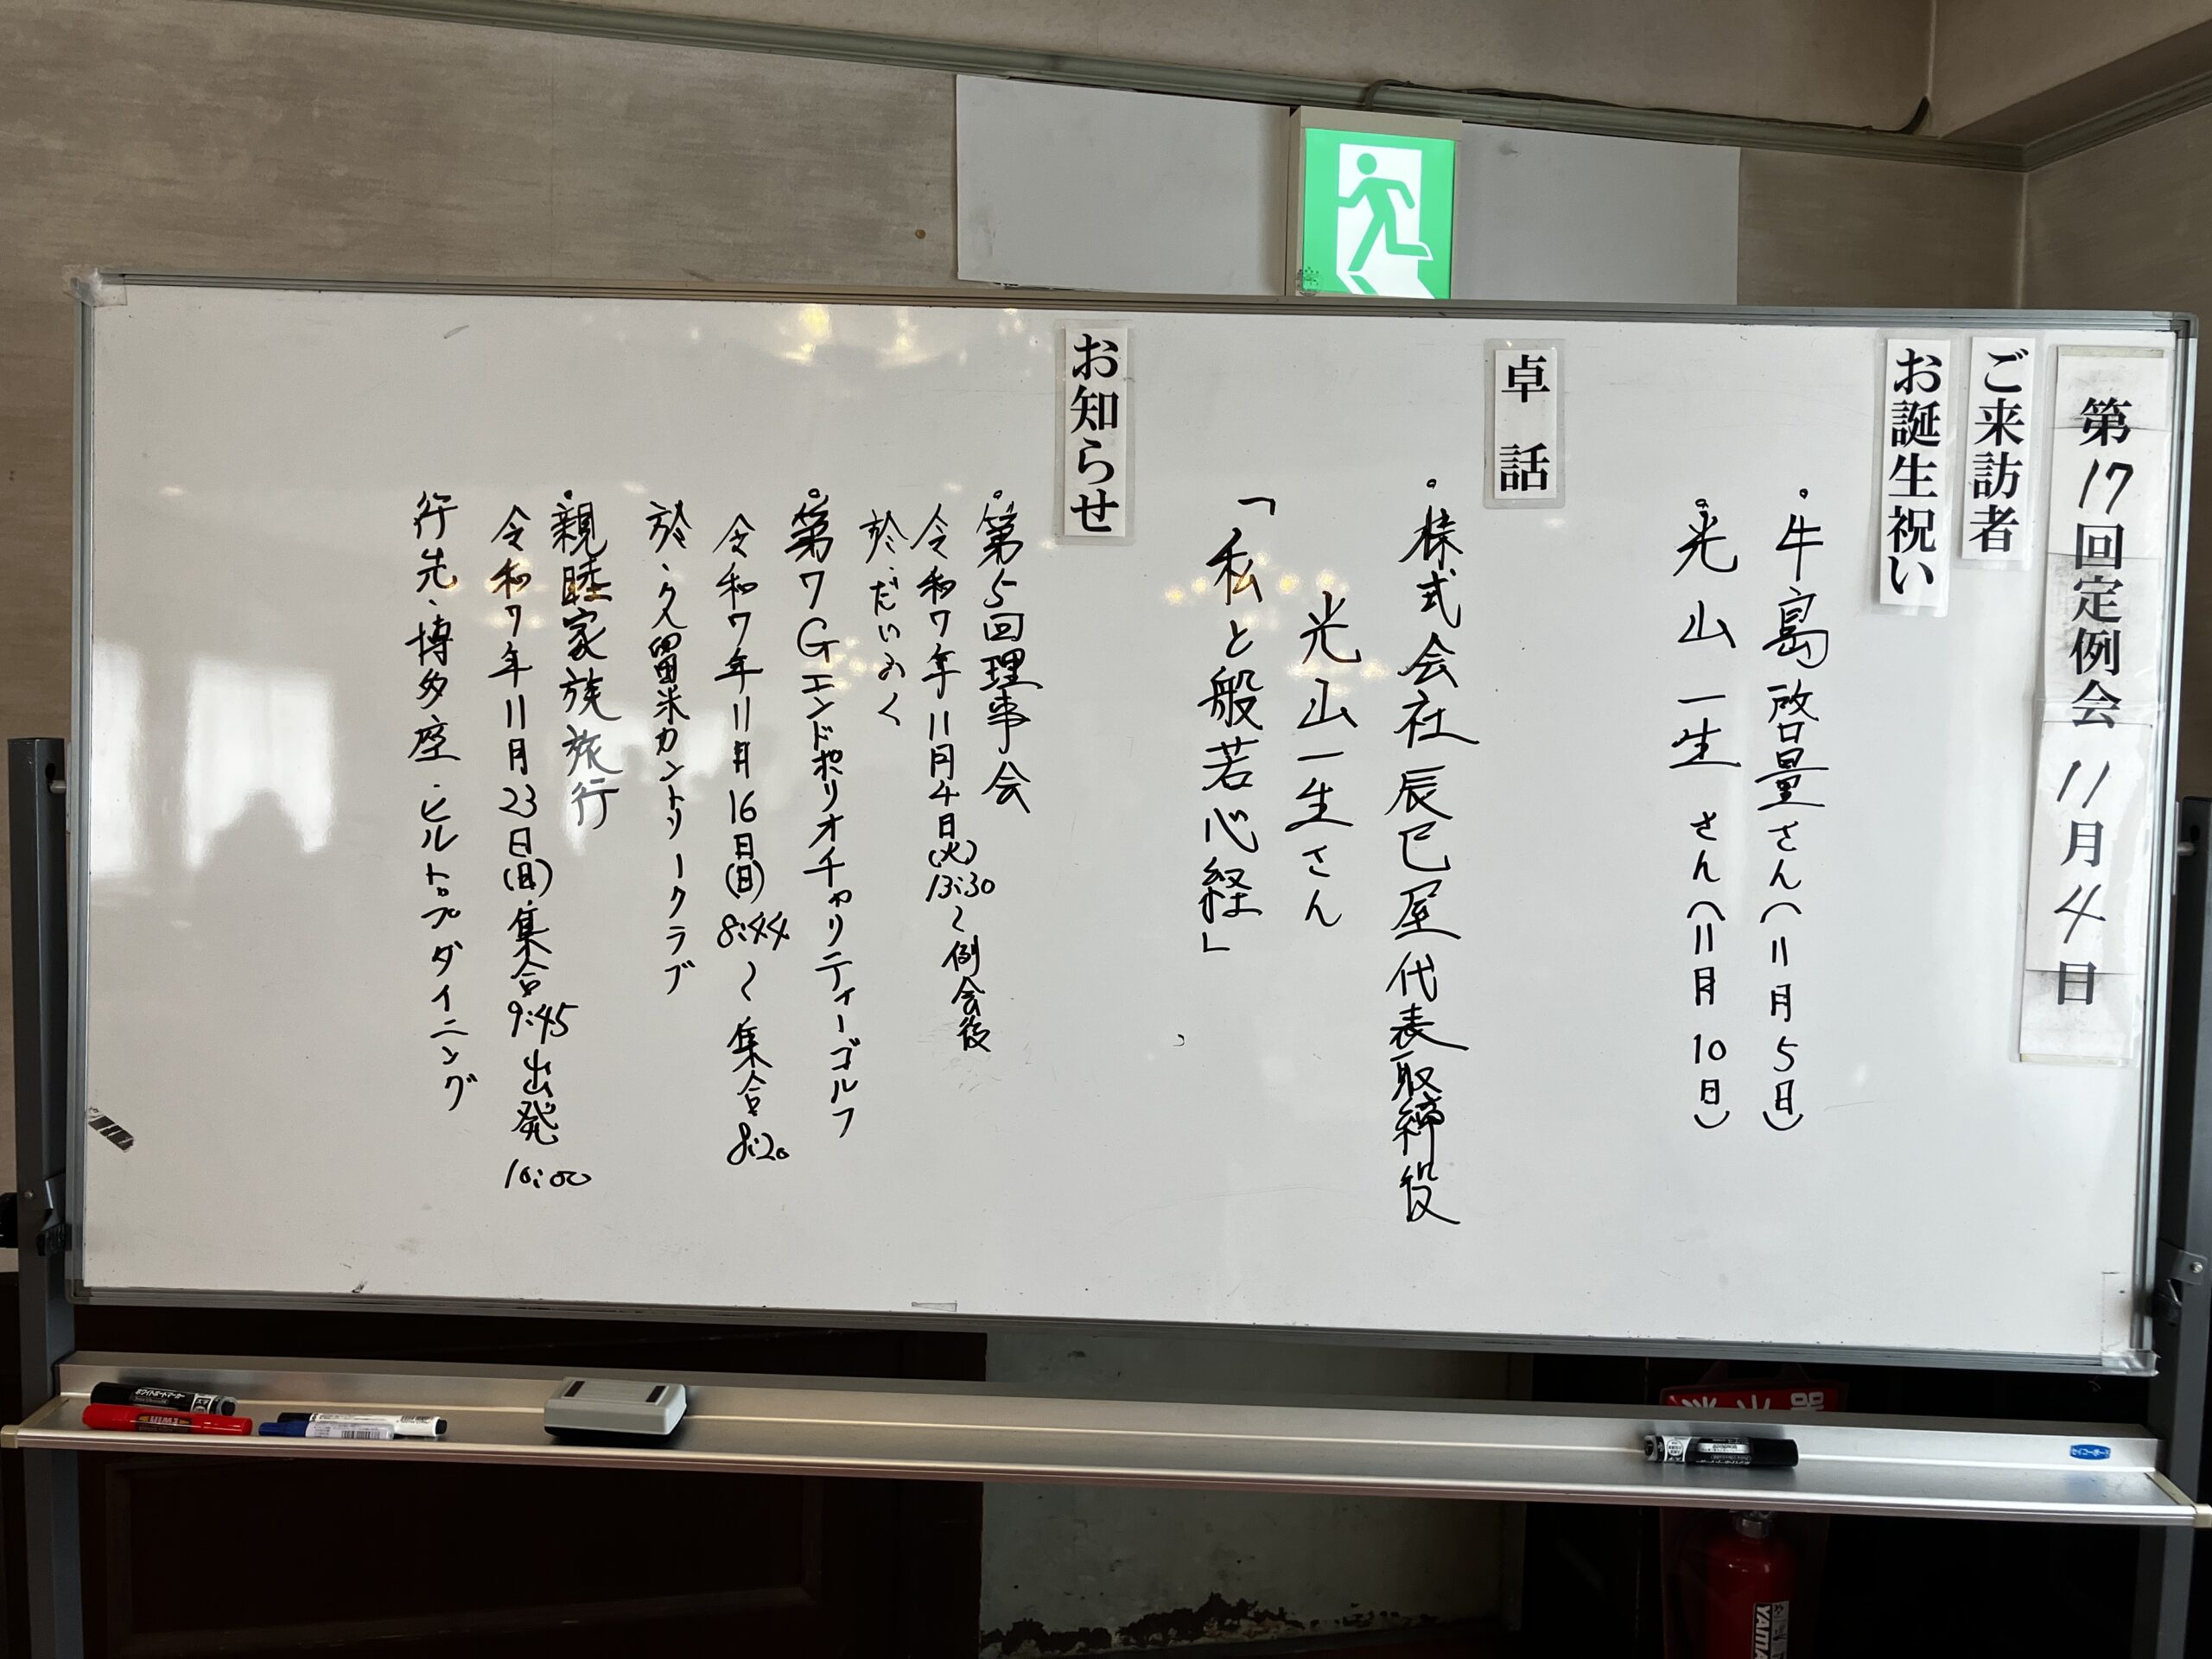 第17回定例会 11月4日
ご来訪者
お誕生祝い
。牛島啓量さん(11月5日)
。光山一生さん(11月10日)
卓話
。株式会社辰巳屋代表取締役
光山一生さん
「私と般若心経」
お知らせ
。第5回理事会
令和7年11月4日(火)13:30〜例会後
。第7Gエンドポリオチャリティーゴルフ
令和7年11月16日(日)8:44〜集合8:20
於・久留米カントリークラブ
。親睦家族旅行
令和7年11月23日(日)集合9:45出発10:00
行先・博多座・ヒルトップダイニング
YAMA